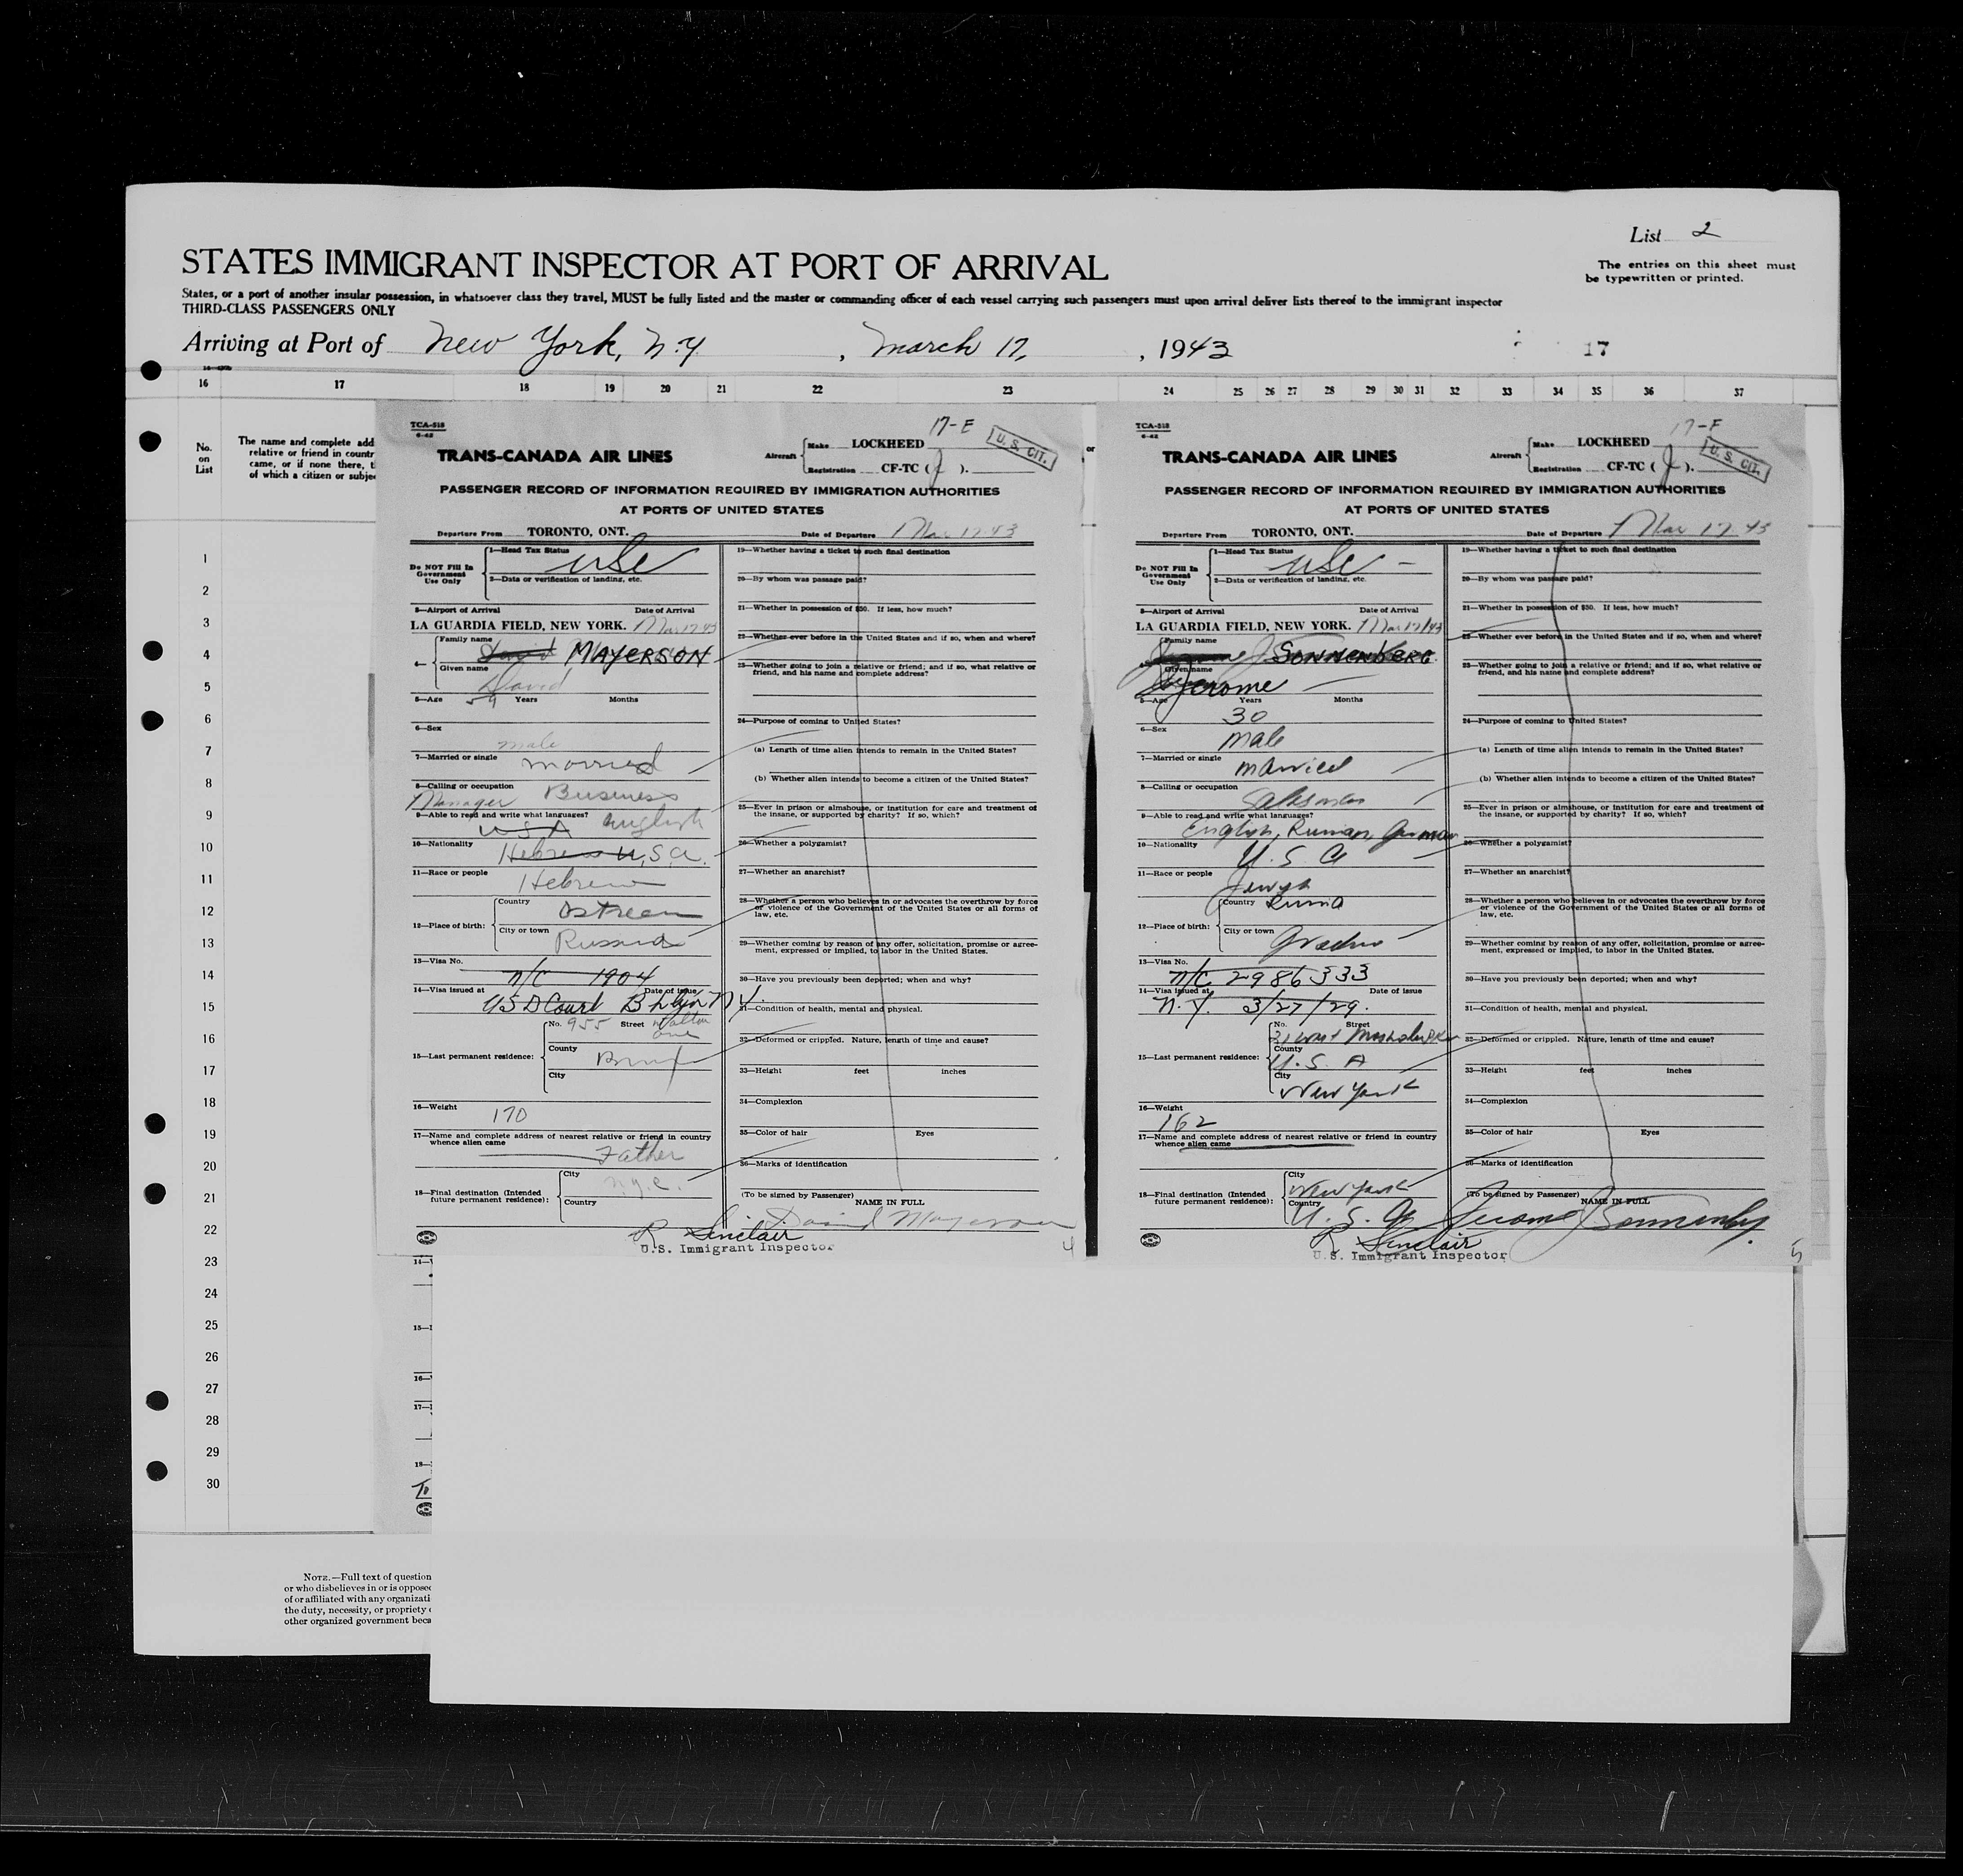 List 2
The entries on this sheet must
be typewritten or printed.
STATES IMMIGRANT INSPECTOR AT PORT OF ARRIVAL
States, or a port of another insular possession, in whatsoever class they travel, MUST be fully listed and the master or commanding officer of each vessel carrying such passengers must upon arrival deliver lists thereof to the immigrant inspector
THIRD-CLASS PASSENGERS ONLY
Arriving at Port of New York, N.Y. , March 17, , 1943 17
16 17 18 19 20 21 22 23 24 25 26 27 28 29 30 31 32 33 34 35 36 37
No.
on
List
The name and complete add
relative or friend in countr
came, or if none there, t
of which a citizen or subje
1
2
3
4
5
6
7
8
9
10
11
12
13
14
15
16
17
18
19
20
21
22
23
24
25
26
27
28
29
30
TCA-518
6-42
17-E
U. S. CIT.
TRANS-CANADA AIR LINES
Aircraft Make LOCKHEED
Registration CF-TC ( J ).
PASSENGER RECORD OF INFORMATION REQUIRED BY IMMIGRATION AUTHORITIES
AT PORTS OF UNITED STATES
Departure From TORONTO, ONT. Date of Departure Mar 17-43
Do NOT Fill In
Government
Use Only
1—Head Tax Status
USC
2—Data or verification of landing, etc.
3—Airport of Arrival Date of Arrival
LA GUARDIA FIELD, NEW YORK. Mar 17 43
4— Family name David MAYERSON
Given name
David
5—Age 54 Years Months
6—Sex
male
7—Married or single married
8—Calling or occupation Business
Manager
9—Able to read and write what languages? English
USA
10—Nationality Hebrew U.S.A.
11—Race or people
Hebrew
12—Place of birth: Country
City or town
Russia
13—Visa No.
N/C 1904
14—Visa issued at Date of issue
US D Court Bklyn N.Y.
15—Last permanent residence: No. 955 Street Walton
ave
County Bronx
City
16—Weight
170
17—Name and complete address of nearest relative or friend in country
whence alien came
Father
18—Final destination (Intended
future permanent residence): City
N.Y.C.
Country
19—Whether having a ticket to such final destination
20—By whom was passage paid?
21—Whether in possession of $50. If less, how much?
22—Whether ever before in the United States and if so, when and where?
23—Whether going to join a relative or friend; and if so, what relative or
friend, and his name and complete address?
24—Purpose of coming to United States?
(a) Length of time alien intends to remain in the United States?
(b) Whether alien intends to become a citizen of the United States?
25—Ever in prison or almshouse, or institution for care and treatment of
the insane, or supported by charity? If so, which?
26—Whether a polygamist?
27—Whether an anarchist?
28—Whether a person who believes in or advocates the overthrow by force
or violence of the Government of the United States or all forms of
law, etc.
29—Whether coming by reason of any offer, solicitation, promise or agree-
ment, expressed or implied, to labor in the United States.
30—Have you previously been deported; when and why?
31—Condition of health, mental and physical.
32—Deformed or crippled. Nature, length of time and cause?
33—Height feet inches
34—Complexion
35—Color of hair Eyes
36—Marks of identification
(To be signed by Passenger) NAME IN FULL
David Mayerson
R Sinclair
U.S. Immigrant Inspector
4
or
TCA-518
6-42
17-F
U. S. CIT.
TRANS-CANADA AIR LINES
Aircraft Make LOCKHEED
Registration CF-TC ( J ).
PASSENGER RECORD OF INFORMATION REQUIRED BY IMMIGRATION AUTHORITIES
AT PORTS OF UNITED STATES
Departure From TORONTO, ONT. Date of Departure Mar 17-43
Do NOT Fill In
Government
Use Only
1—Head Tax Status
USC
2—Data or verification of landing, etc.
3—Airport of Arrival Date of Arrival
LA GUARDIA FIELD, NEW YORK. Mar 17/43
Family name
SONNENBERG
Given name
Jerome
5—Age Years Months
30
6—Sex
male
7—Married or single
married
8—Calling or occupation
Salesman
9—Able to read and write what languages?
English, Russian, German
10—Nationality
U. S. A
11—Race or people
Jewish
12—Place of birth: Country Russia
City or town
Grodno
13—Visa No.
N/C 2986333
14—Visa issued at Date of issue
N.Y. 3/27/29.
15—Last permanent residence: No. Street
County
U. S. A
City
New York
16—Weight
162
17—Name and complete address of nearest relative or friend in country
whence alien came
18—Final destination (Intended
future permanent residence): City
New York
Country
U. S. A
19—Whether having a ticket to such final destination
20—By whom was passage paid?
21—Whether in possession of $50. If less, how much?
22—Whether ever before in the United States and if so, when and where?
23—Whether going to join a relative or friend; and if so, what relative or
friend, and his name and complete address?
24—Purpose of coming to United States?
(a) Length of time alien intends to remain in the United States?
(b) Whether alien intends to become a citizen of the United States?
25—Ever in prison or almshouse, or institution for care and treatment of
the insane, or supported by charity? If so, which?
26—Whether a polygamist?
27—Whether an anarchist?
28—Whether a person who believes in or advocates the overthrow by force
or violence of the Government of the United States or all forms of
law, etc.
29—Whether coming by reason of any offer, solicitation, promise or agree-
ment, expressed or implied, to labor in the United States.
30—Have you previously been deported; when and why?
31—Condition of health, mental and physical.
32—Deformed or crippled. Nature, length of time and cause?
33—Height feet inches
34—Complexion
35—Color of hair Eyes
36—Marks of identification
(To be signed by Passenger) NAME IN FULL
Jerome J Sonnenberg
R Sinclair
U.S. Immigrant Inspector
5
14—
15—
16—
17—
18—
To
NOTE.—Full text of question
or who disbelieves in or is oppose
of or affiliated with any organizati
the duty, necessity, or propriety
other organized government beca